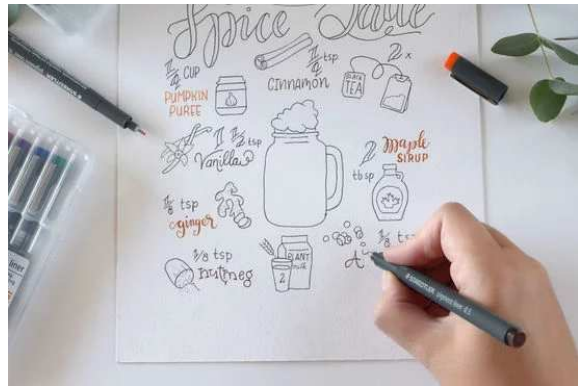 Spice Latte
1/4 CUP
PUMPKIN
PUREE
1/4 tsp
CINNAMON
2 x
BLACK
TEA
1 1/2 tsp
Vanilla
2
tbsp
maple
SIRUP
1/8 tsp
ginger
1/8 tsp
nutmeg
PLANT
MILK
2
1/8 tsp
A
STAEDTLER pigment liner 0.5
liner